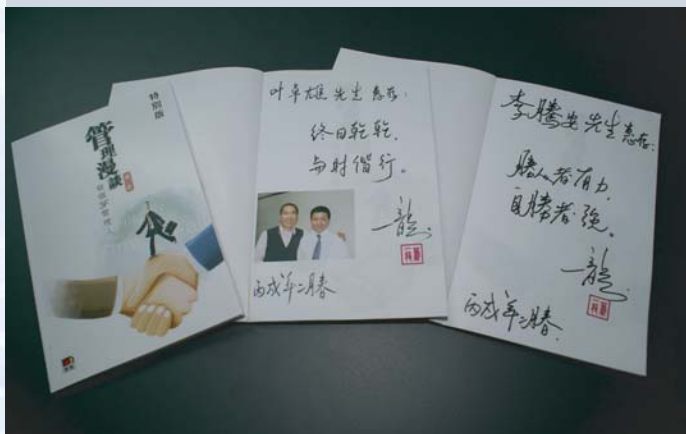 特別版
管理漫談
叶卓雄先生惠存：
终日乾乾，
与时偕行。
一龍
丙戌年二月春
李騰安先生惠存：
勝人者有力，
自勝者强。
一龍
丙戌年二春